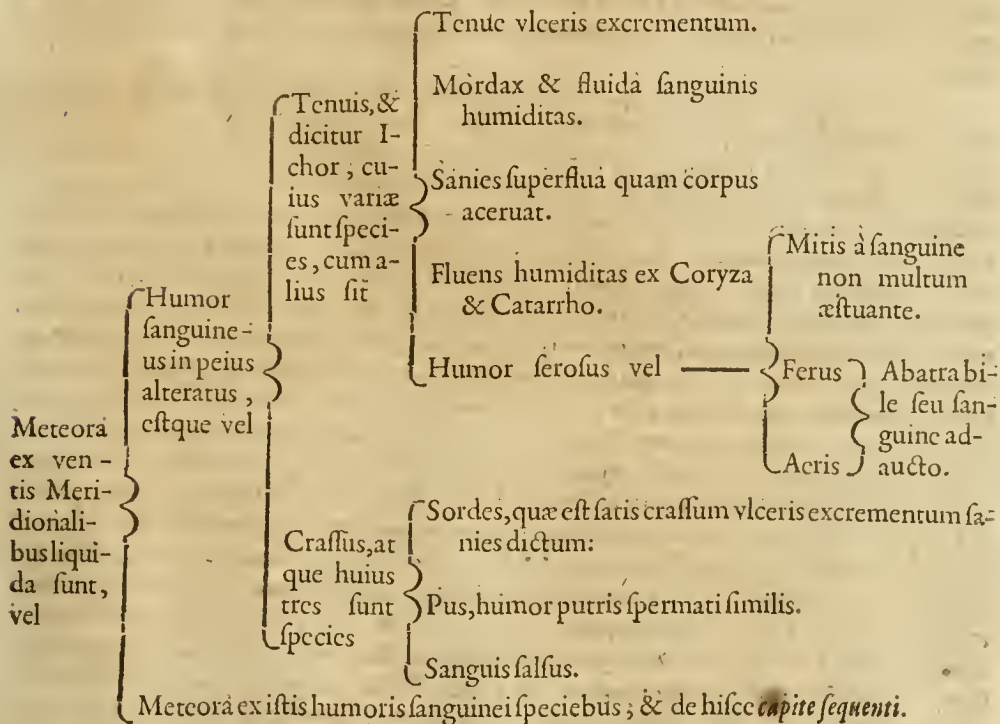 Meteora
ex ven-
tis Meri-
dionali-
bus liqui-
da ſunt,
vel
Humor
ſanguine-
us in peius
alteratus,
eſtque vel
Tenuis, &
dicitur I-
chor; cu-
ius variæ
ſunt ſpeci-
es, cum a-
lius ſit
Tenue vlceris excrementum.
Mordax & fluida ſanguinis
humiditas.
Sanies ſuperflua quam corpus
aceruat.
Fluens humiditas ex Coryza
& Catarrho.
Humor ſeroſus vel
Mitis à ſanguine
non multum
æſtuante.
Ferus
Acris
Ab atra bi-
le ſeu ſan-
guine ad-
aucto.
Craſſus, at
que huius
tres ſunt
ſpecies
Sordes, quæ eſt ſatis craſſum vlceris excrementum ſa-
nies dictum:
Pus, humor putris ſpermati ſimilis.
Sanguis ſalſus.
Meteora ex iſtis humoris ſanguinei ſpeciebus; & de hiſce capite ſequenti.